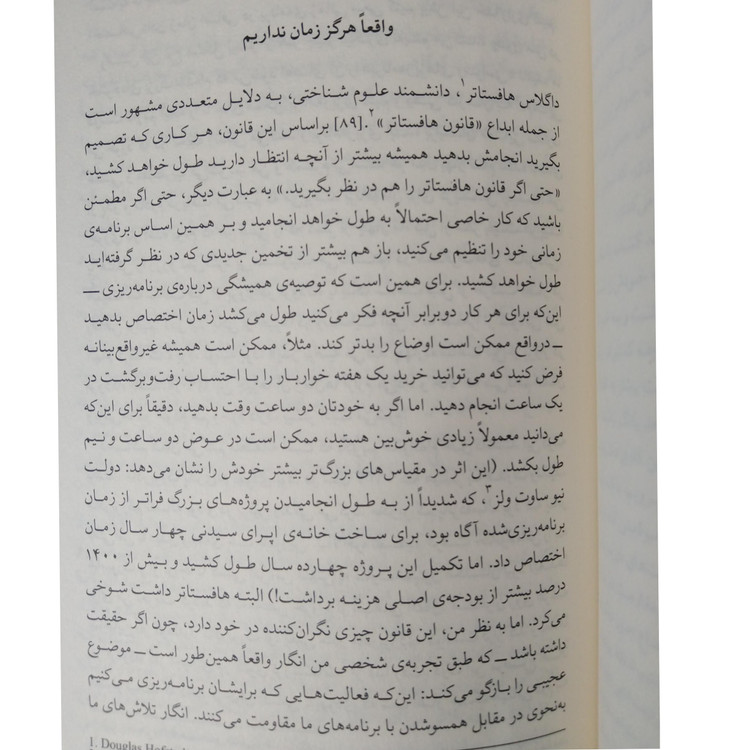 واقعاً هرگز زمان نداریم
داگلاس هافستاتر۱، دانشمند علوم شناختی، به دلایل متعددی مشهور است
از جمله ابداع «قانون هافستاتر»۲.[۸۹] براساس این قانون، هر کاری که تصمیم
بگیرید انجامش بدهید همیشه بیشتر از آنچه انتظار دارید طول خواهد کشید،
«حتی اگر قانون هافستاتر را هم در نظر بگیرید.» به عبارت دیگر، حتی اگر مطمئن
باشید که کار خاصی احتمالاً به طول خواهد انجامید و بر همین اساس برنامه‌ی
زمانی خود را تنظیم می‌کنید، باز هم بیشتر از تخمین جدیدی که در نظر گرفته‌اید
طول خواهد کشید. برای همین است که توصیه‌ی همیشگی درباره‌ی برنامه‌ریزی ــ
این‌که برای هر کار دوبرابر آنچه فکر می‌کنید طول می‌کشد زمان اختصاص بدهید
ــ درواقع ممکن است اوضاع را بدتر کند. مثلاً، ممکن است همیشه غیرواقع‌بینانه
فرض کنید که می‌توانید خرید یک هفته خواربار را با احتساب رفت‌وبرگشت در
یک ساعت انجام دهید. اما اگر به خودتان دو ساعت وقت بدهید، دقیقاً برای این‌که
می‌دانید معمولاً زیادی خوش‌بین هستید، ممکن است در عوض دو ساعت و نیم
طول بکشد. (این اثر در مقیاس‌های بزرگ‌تر بیشتر خودش را نشان می‌دهد: دولت
نیو ساوت ولز۳، که شدیداً از به طول انجامیدن پروژه‌های بزرگ فراتر از زمان
برنامه‌ریزی‌شده آگاه بود، برای ساخت خانه‌ی اپرای سیدنی چهار سال زمان
اختصاص داد. اما تکمیل این پروژه چهارده سال طول کشید و بیش از ۱۴۰۰
درصد بیشتر از بودجه‌ی اصلی هزینه برداشت!) البته هافستاتر داشت شوخی
می‌کرد. اما به نظر من، این قانون چیزی نگران‌کننده در خود دارد، چون اگر حقیقت
داشته باشد ــ که طبق تجربه‌ی شخصی من انگار واقعاً همین‌طور است ــ موضوع
عجیبی را بازگو می‌کند: این‌که فعالیت‌هایی که برایشان برنامه‌ریزی می‌کنیم
به‌نحوی در مقابل همسوشدن با برنامه‌های ما مقاومت می‌کنند. انگار تلاش‌های ما
1. Douglas